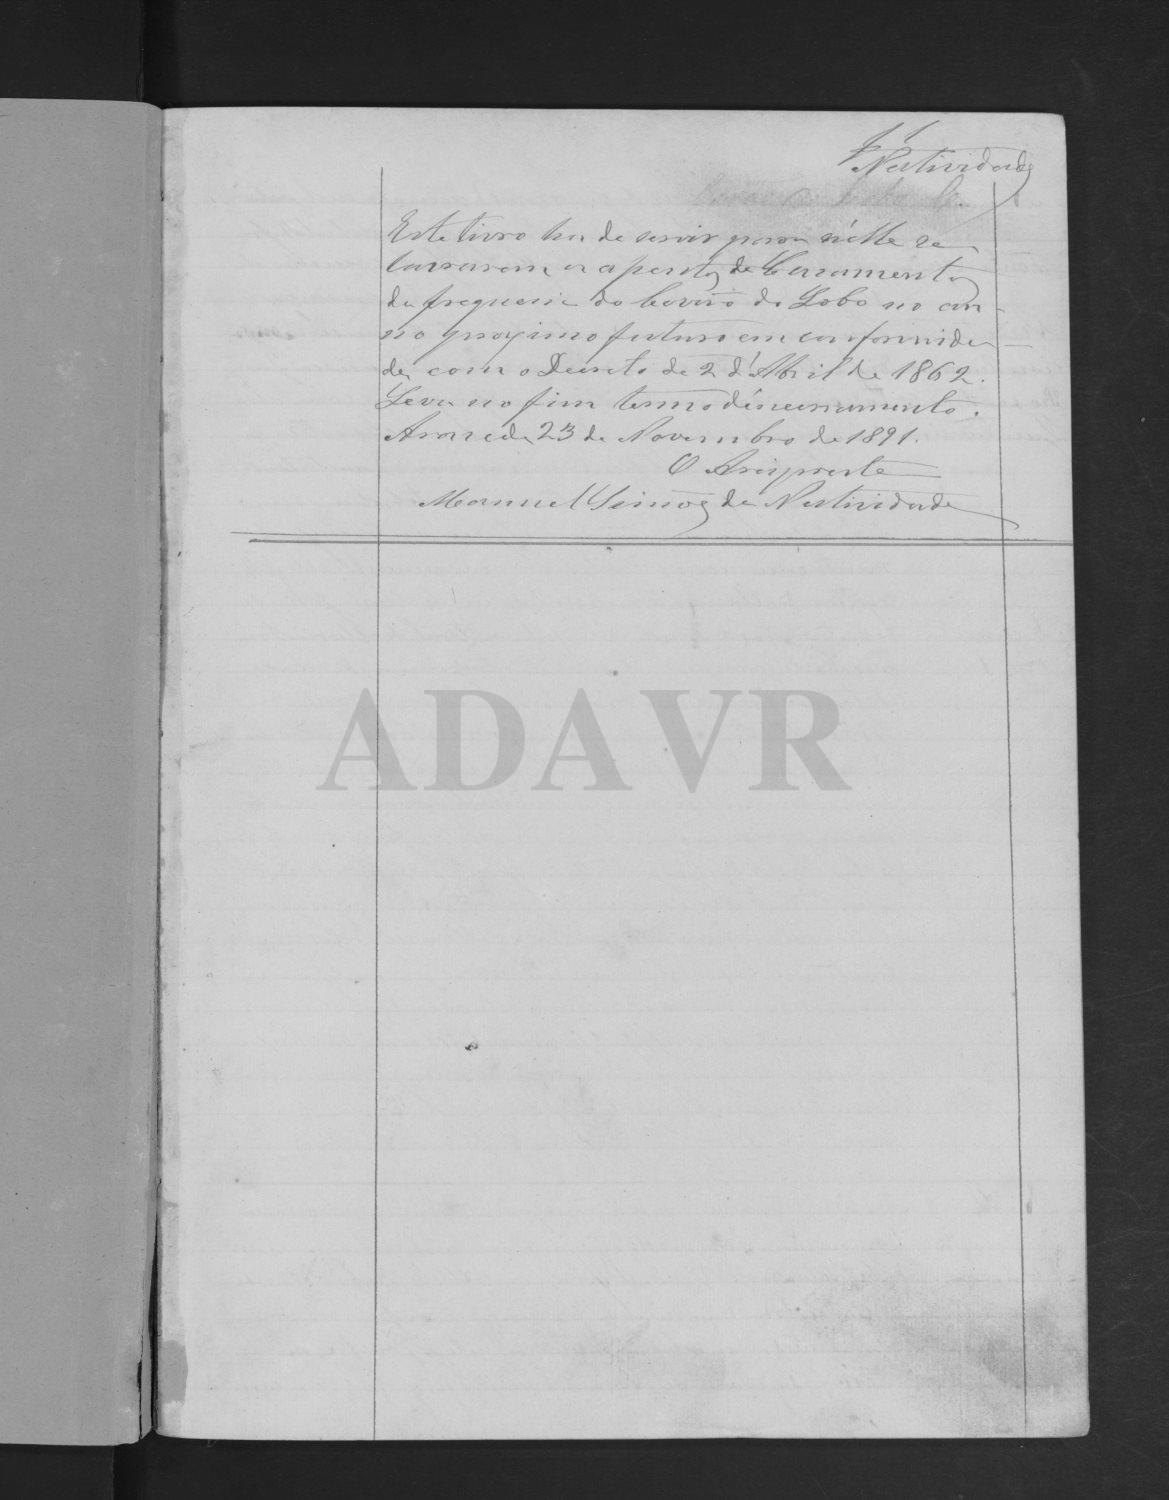 f 1
Natividade
Este livro ha de servir para n'elle se
lavrarem os assentos de Casamentos
da freguesia do Covão do Lobo no an-
no proximo futuro em conformida-
de com o Decreto de 2 d'Abril de 1862.
Leva no fim termo d'encerramento.
Arazede 23 de Novembro de 1891.
O Arcipreste
Manuel Simões da Natividade
ADAVR